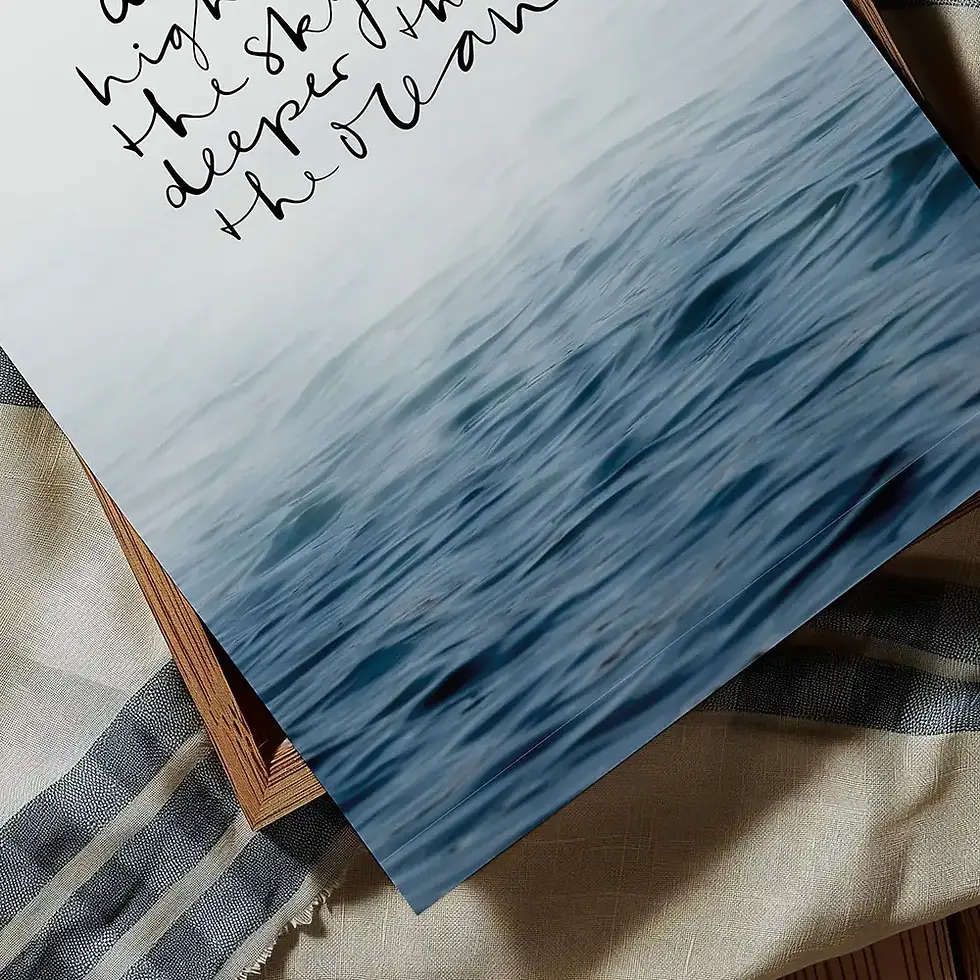 high
the sky
deeper th
the ocean